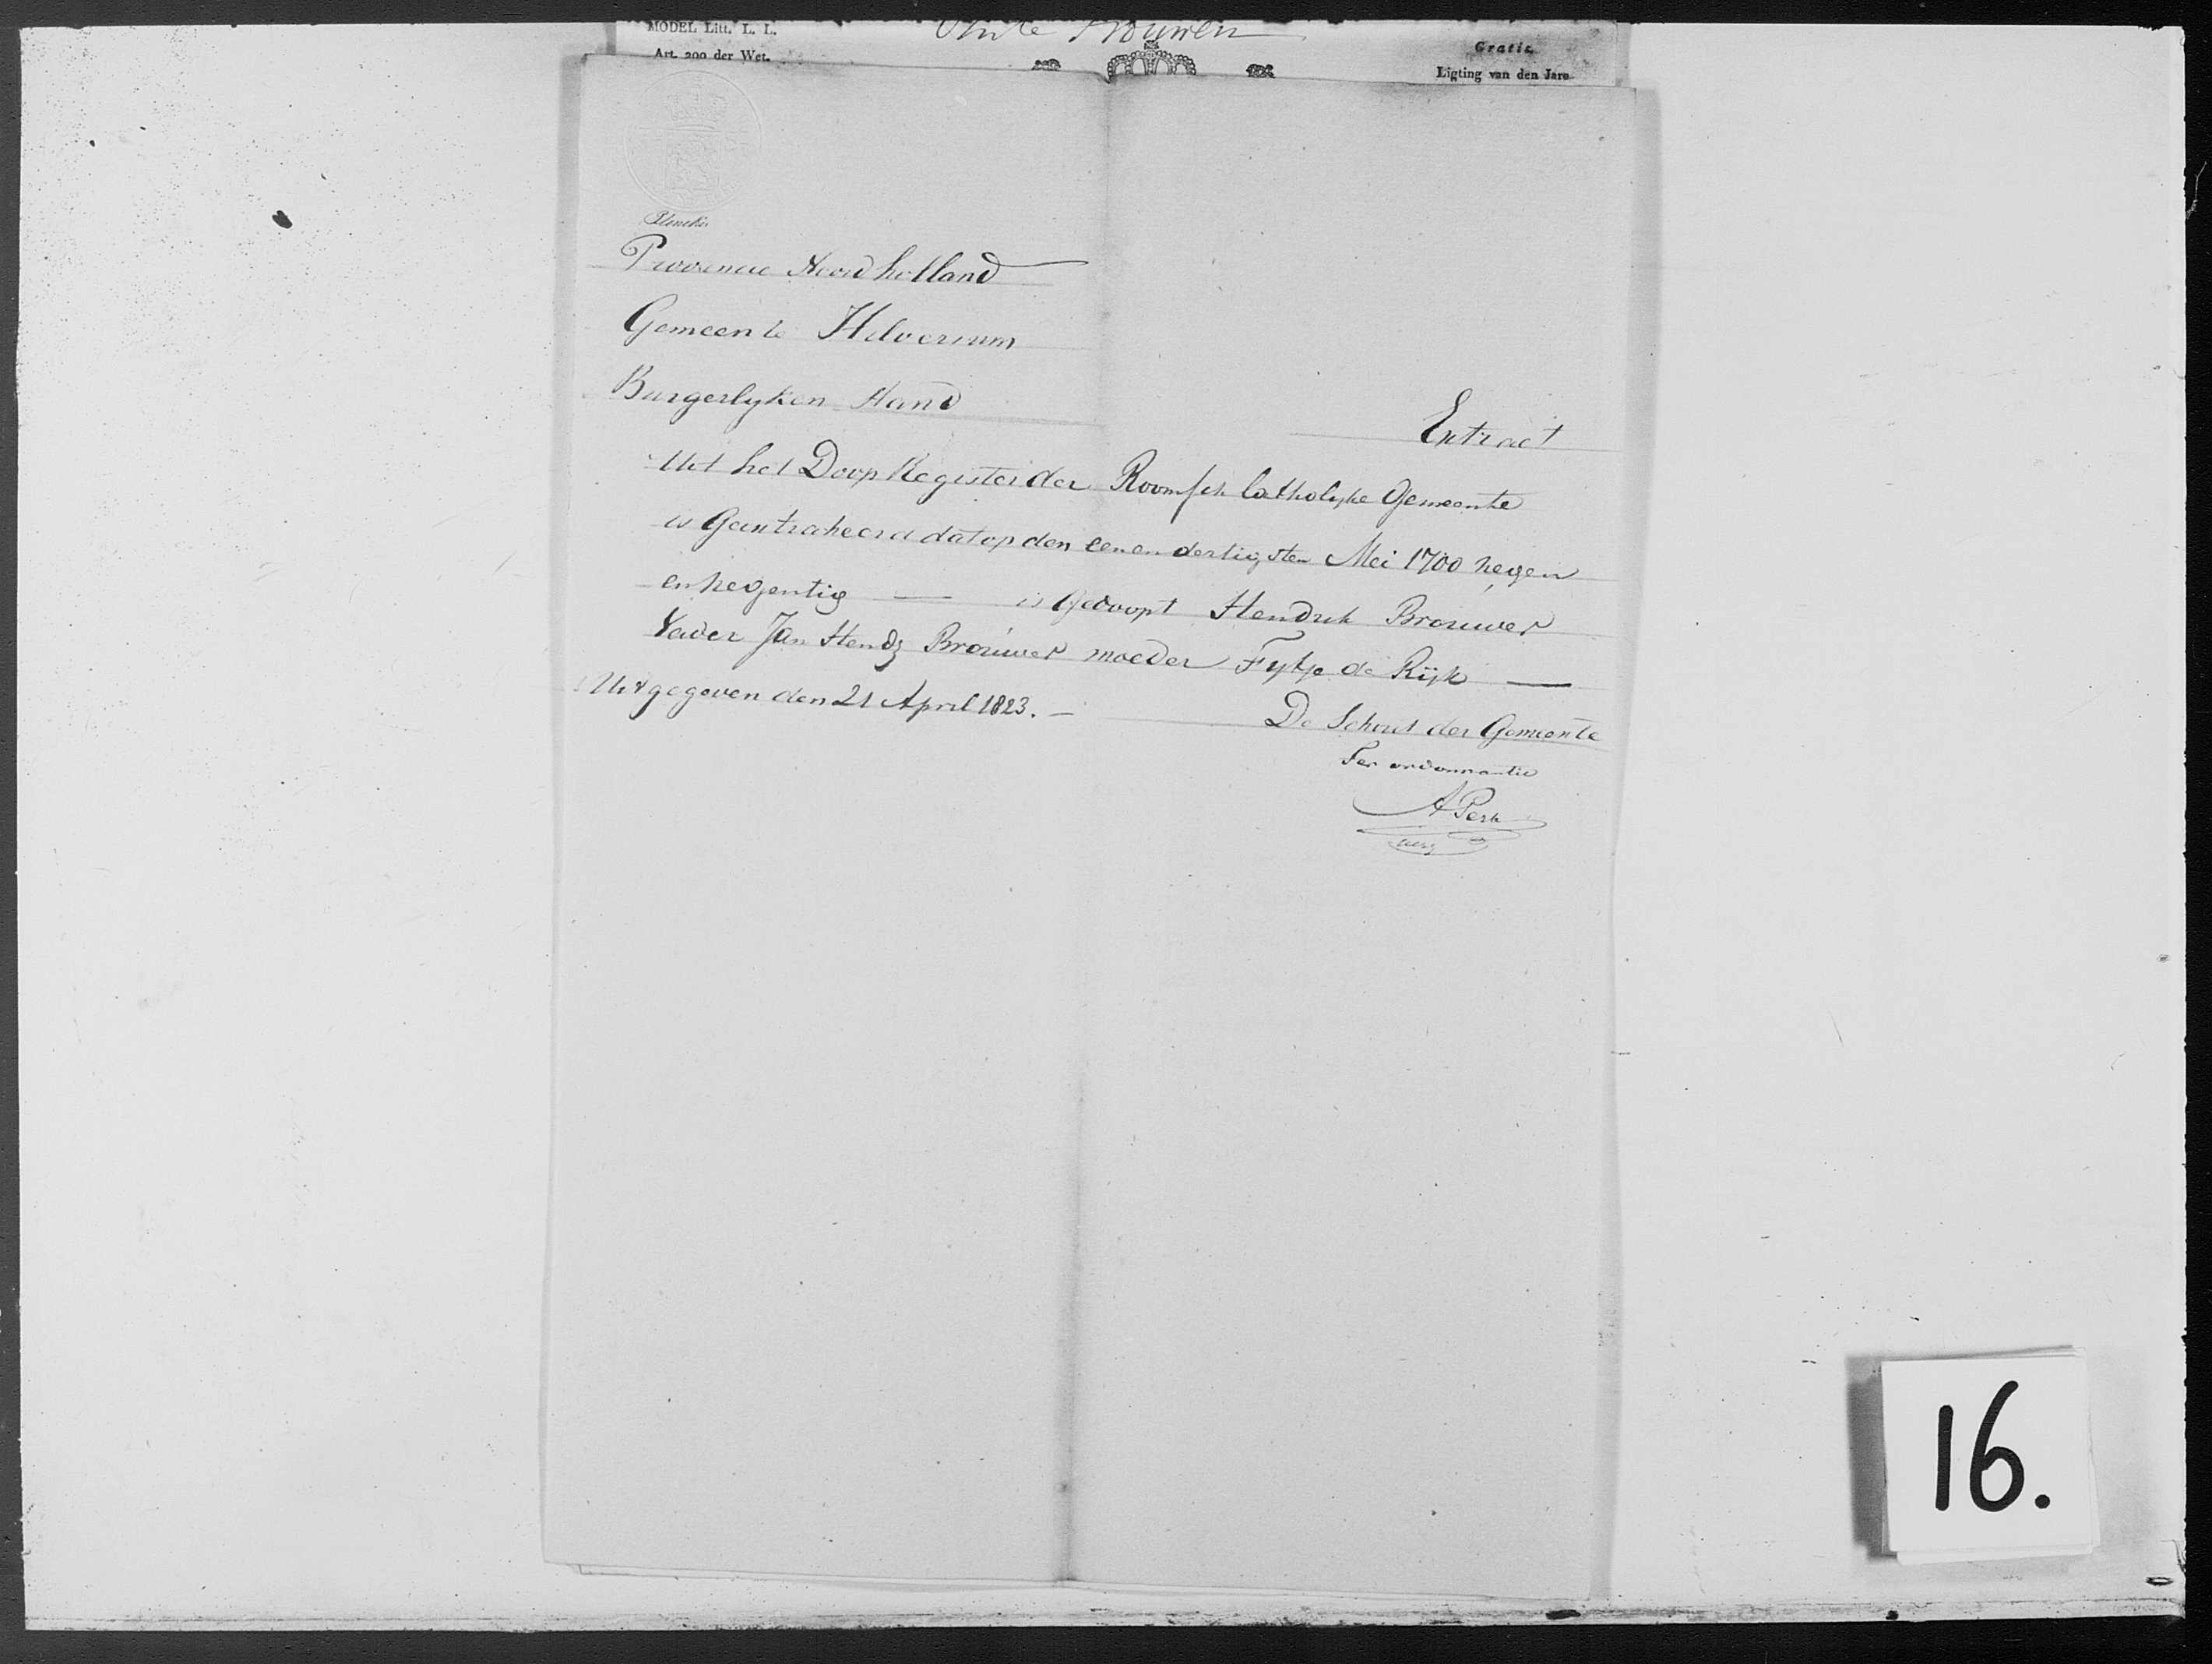 MODEL Litt. L. L.
Art. 200 der Wet.
Gratis.
Ligting van den Jare
Provincie Noord holland
Gemeente Hilversum
Burgerlyken Stand
Extract
Uit het Doop Register der Roomsch Catholyke Gemeente
is Geextraheerd dat op den een en dertigsten Mei 1700 negen
en negentig — is Gedoopt Hendrik Brouwer
Vader Jan Hendz Brouwer moeder Fytje de Rijk —
Uitgegeven den 21 April 1823. —
De Schout der Gemeente
Ter ordonnantie
A Perk
16.